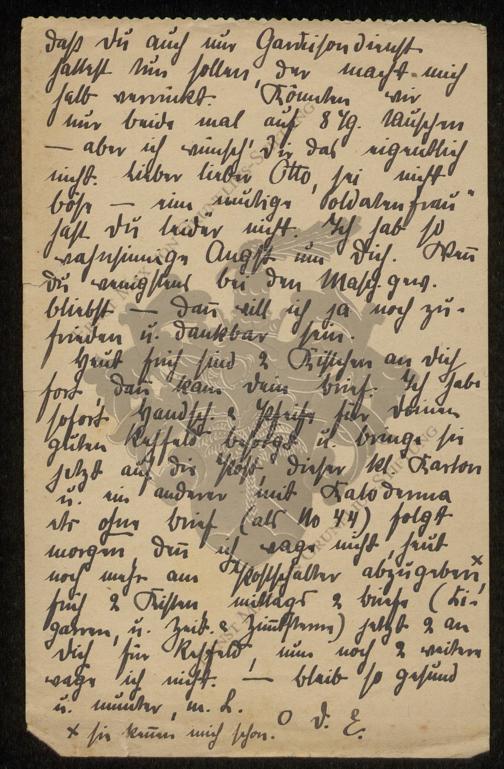 daß Du auch nur Garnisondienst
hattest tun sollen, der macht mich
halb verrückt. Könnten wir
nur beide mal auf 8 Tg. tauschen
— aber ich wünsch' Dir das eigentlich
nicht. Lieber lieber Otto, sei nicht
böse — eine mutige „Soldatenfrau"
hast Du leider nicht. Ich hab so
wahnsinnige Angst um Dich. Wenn
Du wenigstens bei den Masch.gew.
bliebst — dann will ich ja noch zu-
frieden u. dankbar sein.
Heut früh sind 2 Kistchen an Dich
fort, dann kam Dein Brief. Ich habe
sofort Handsch. & Pfeife für Deinen
guten Rehfeld besorgt u. bringe sie
jetzt auf die Post, dieser kl. Karton
u. ein anderer mit Kaloderma
etc ohne Brief (als No 44) folgt
morgen denn ich wage nicht, heut
noch mehr am Postschalter abzugeben,ˣ
früh 2 Kisten, mittags 2 Briefe (Zi-
garren, u. Zeit. & Zimtsterne) jetzt 2 an
Dich für Rehfeld, nun noch 2 weitere
wage ich nicht. — bleib so gesund
u. munter, m. L.
O D. E.
x sie kennen mich schon.